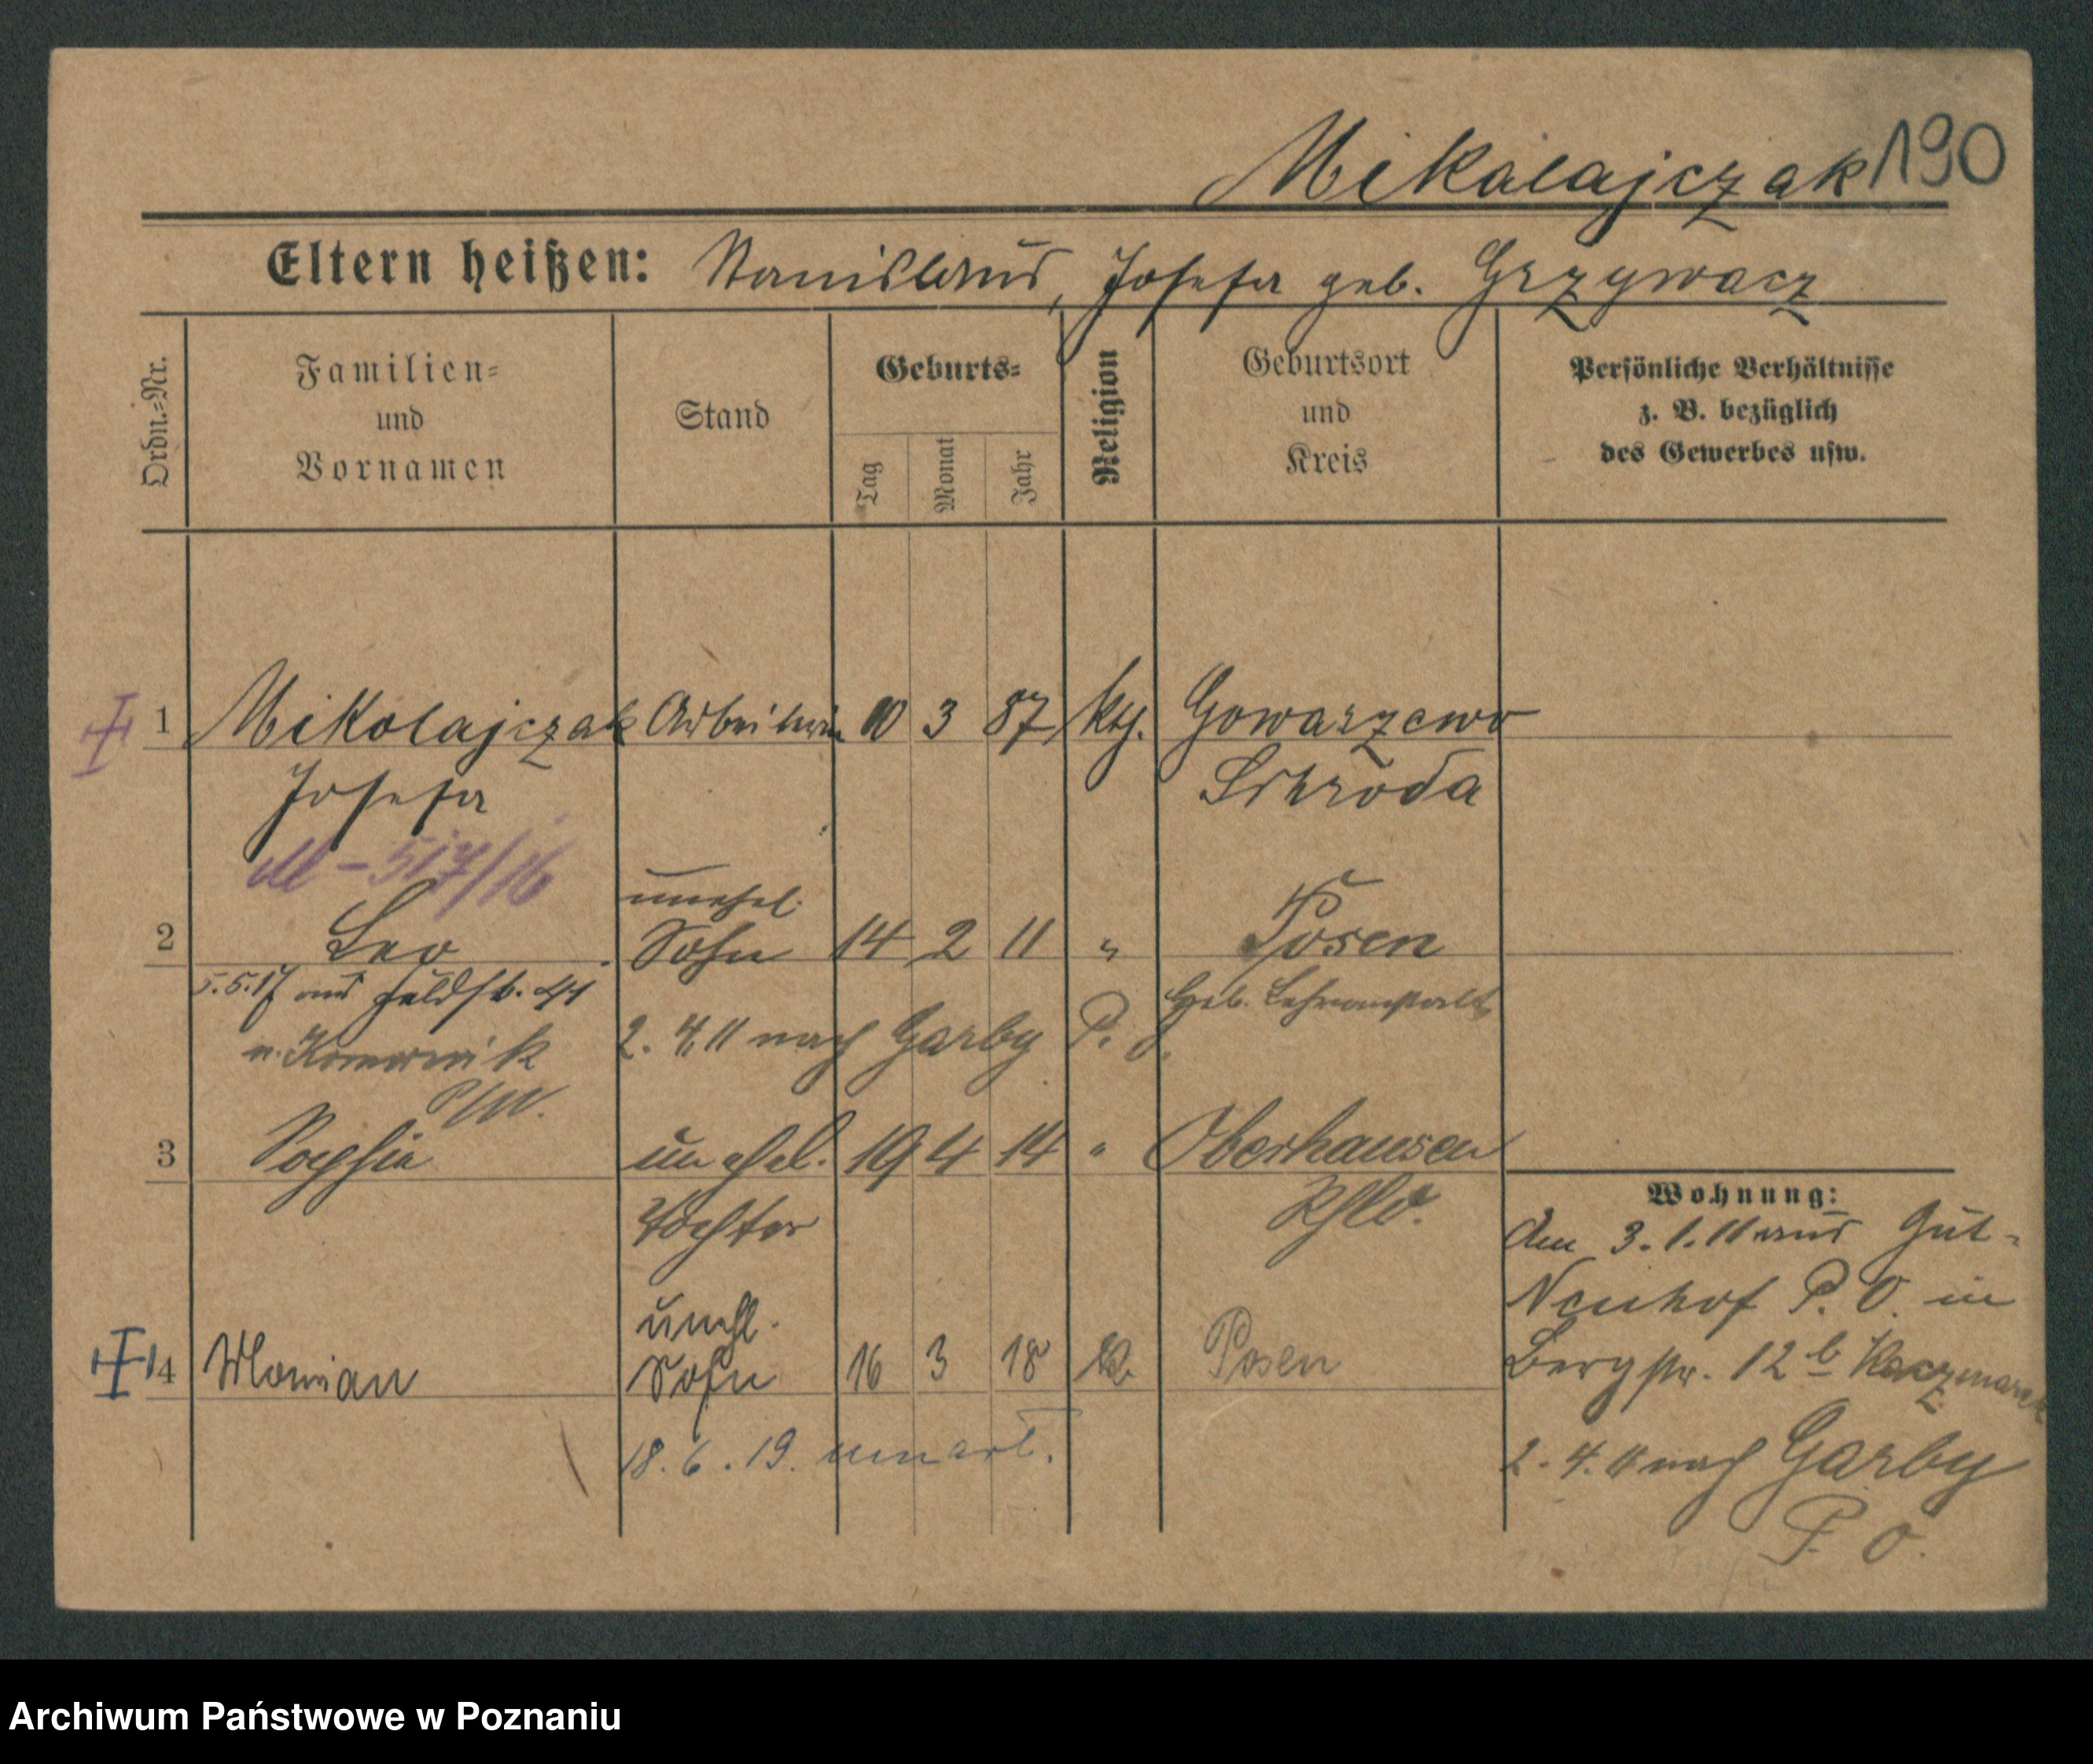 Mikolajczak 190
Eltern heißen: Stanislaus, Josefa geb. Grzywacz
Ordn.=Nr.
Familien=
und
Vornamen
Stand
Geburts=
Tag
Monat
Jahr
Religion
Geburtsort
und
Kreis
Persönliche Verhältnisse
z. B. bezüglich
des Gewerbes usw.
1 Mikolajczak Arbeiterin 10 3 87 kth. Gowarzewo
Josefa Schroda
M-517/16
unehel.
2 Leo Sohn 14 2 11 " Posen
5.5.17 aus Feldstr. 41 Heb. Lehranstalt
n. Komornik 2. 4. 11 nach Garby P. O.
P/W.
3 Sophie unehel. 19 4 14 " Oberhausen
Tochter Rhld.
Wohnung:
Am 3. 1. 11 aus Gut-
Neuhof P. O. in
Bergstr. 12 b Kaczmarek
2. 4. 11 nach Garby
P. O.
unehl.
4 Marian Sohn 16 3 18 k. Posen
18. 6. 19.
Archiwum Państwowe w Poznaniu